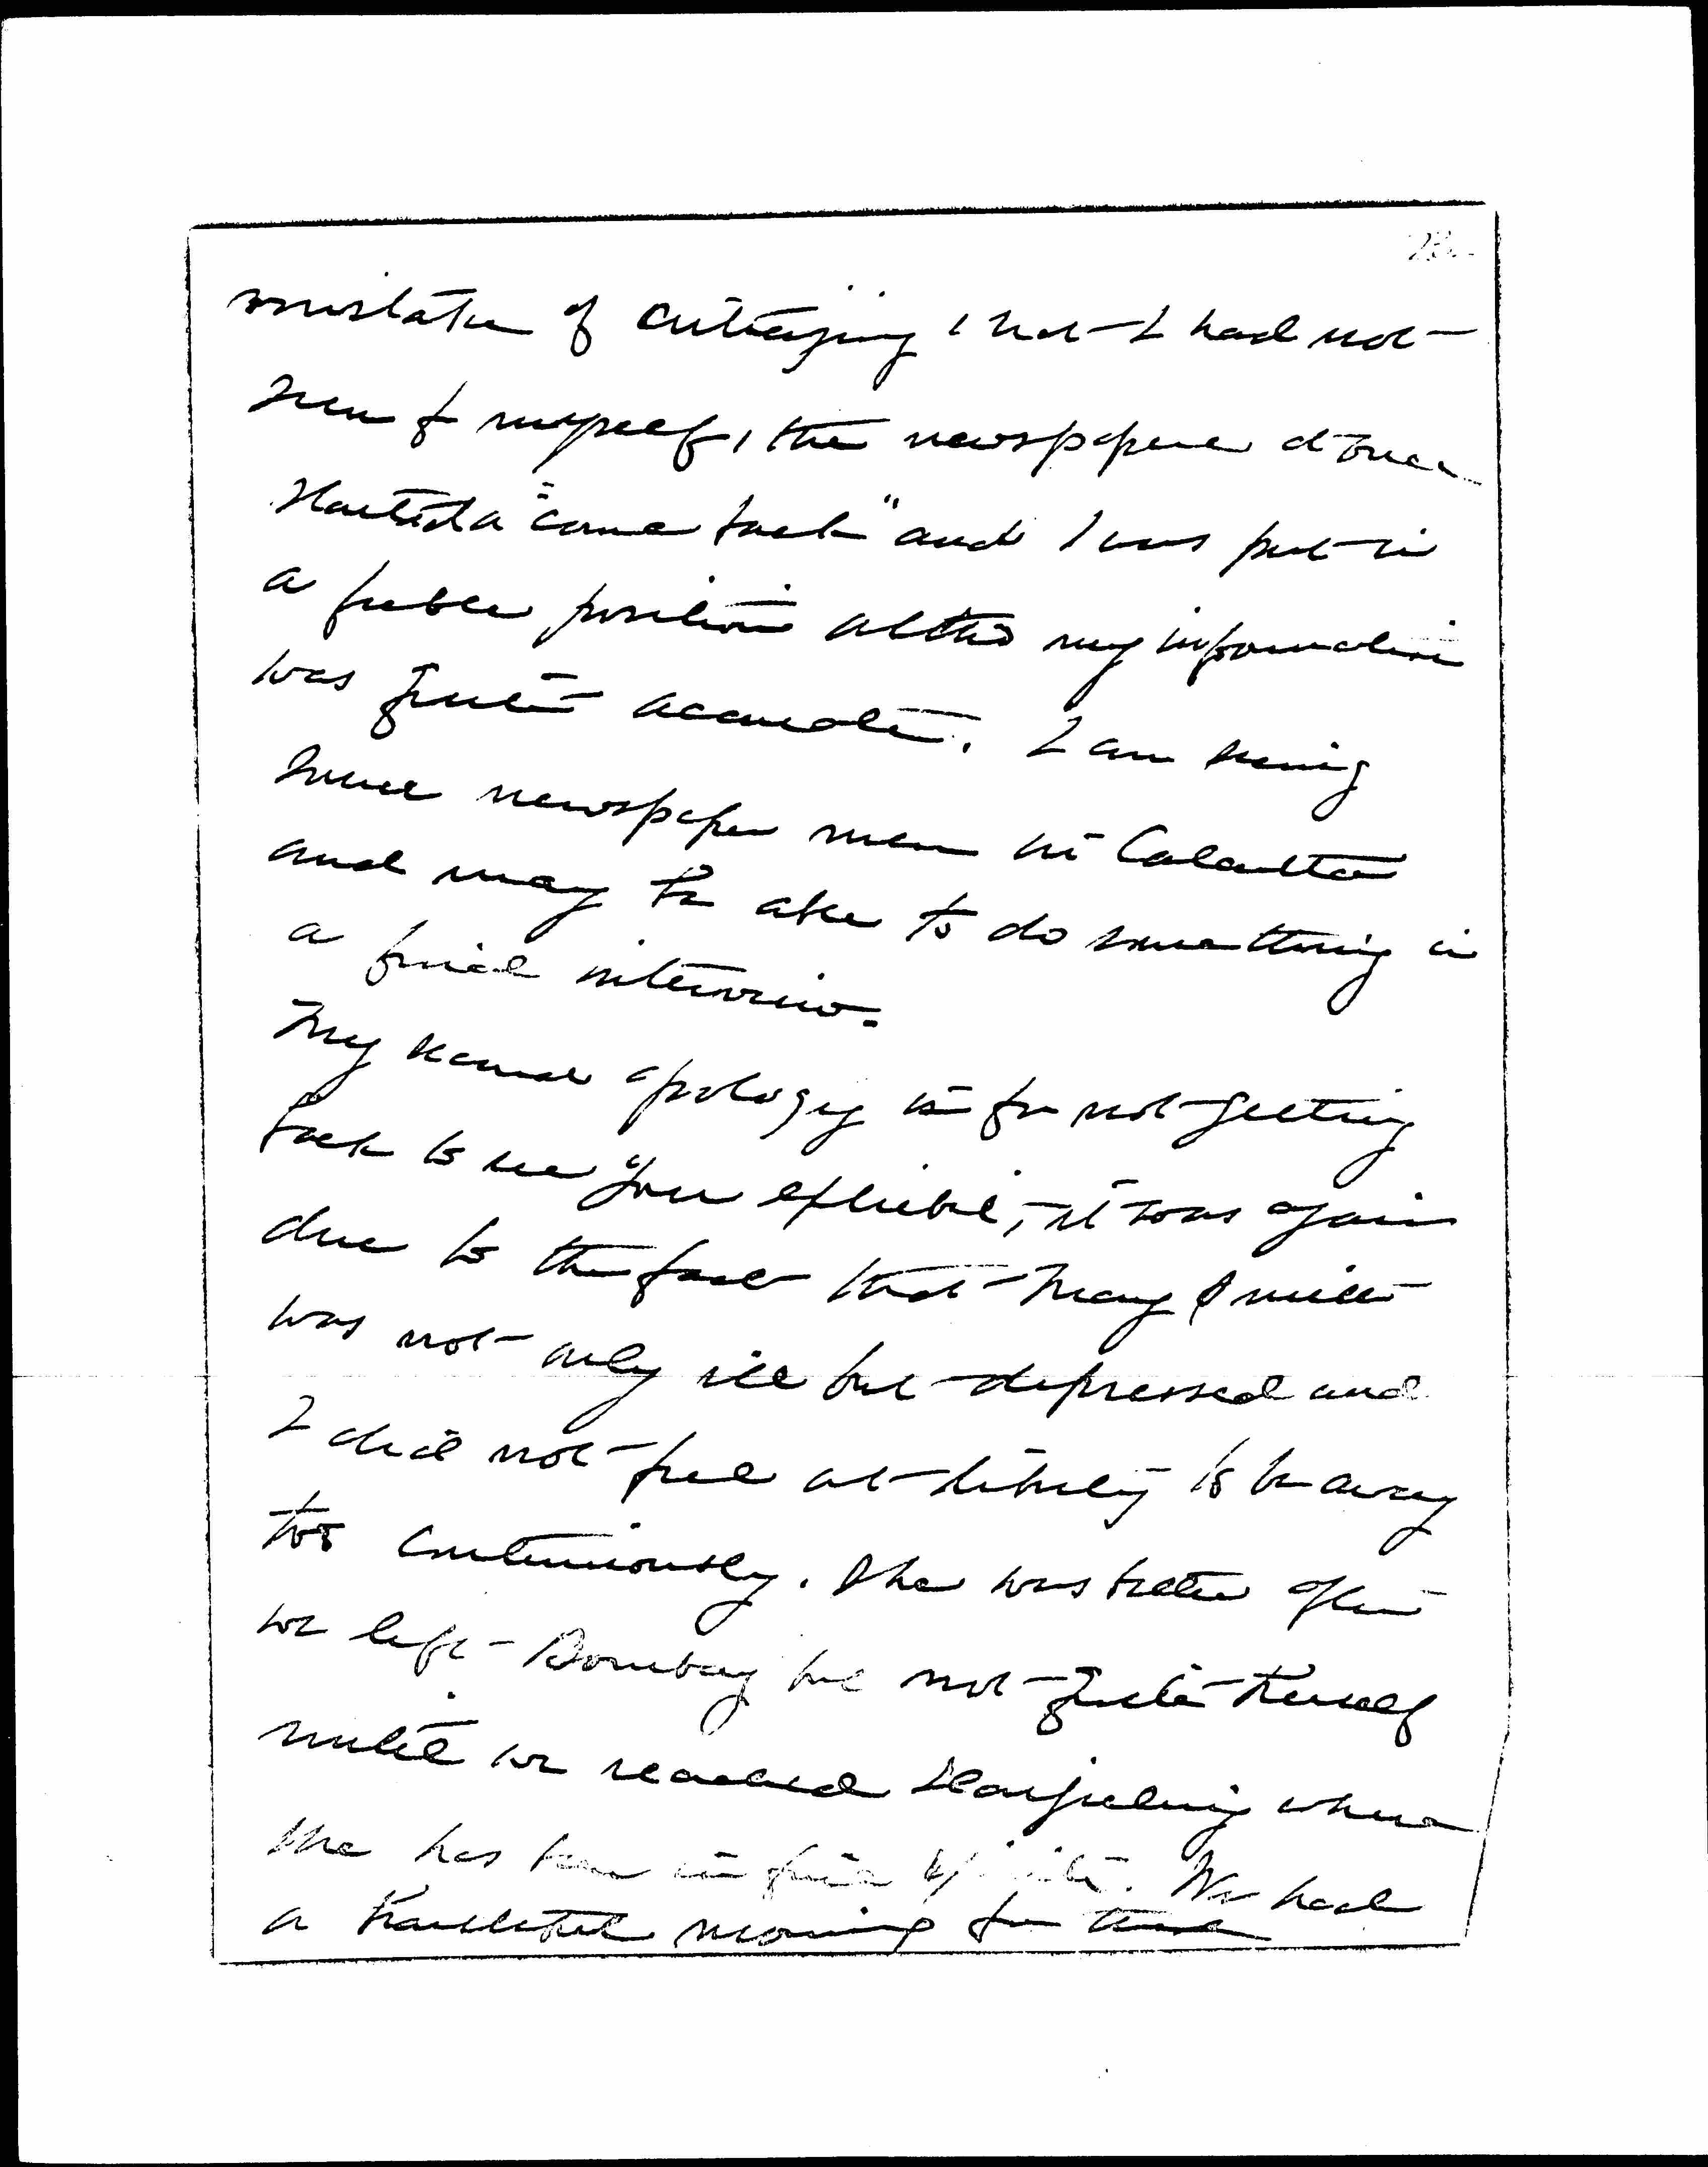 mistake of criticizing what I had not
seen for myself, the newspapers at once
started a "come back" and I was put in
a feeble position altho my information
was quite accurate. I am seeing
some newspaper men in Calcutta
and may be able to do something in
a final interview.
My second apology is for not getting
back to see your exhibit, it was again
due to the fact that Mary Smith
was not only ill but depressed and
I did not feel at liberty to be away
too continuously. She was better after
we left Bombay but not quite herself
until we reached Darjeeling where
she has been in fine spirits. We had
a beautiful morning for